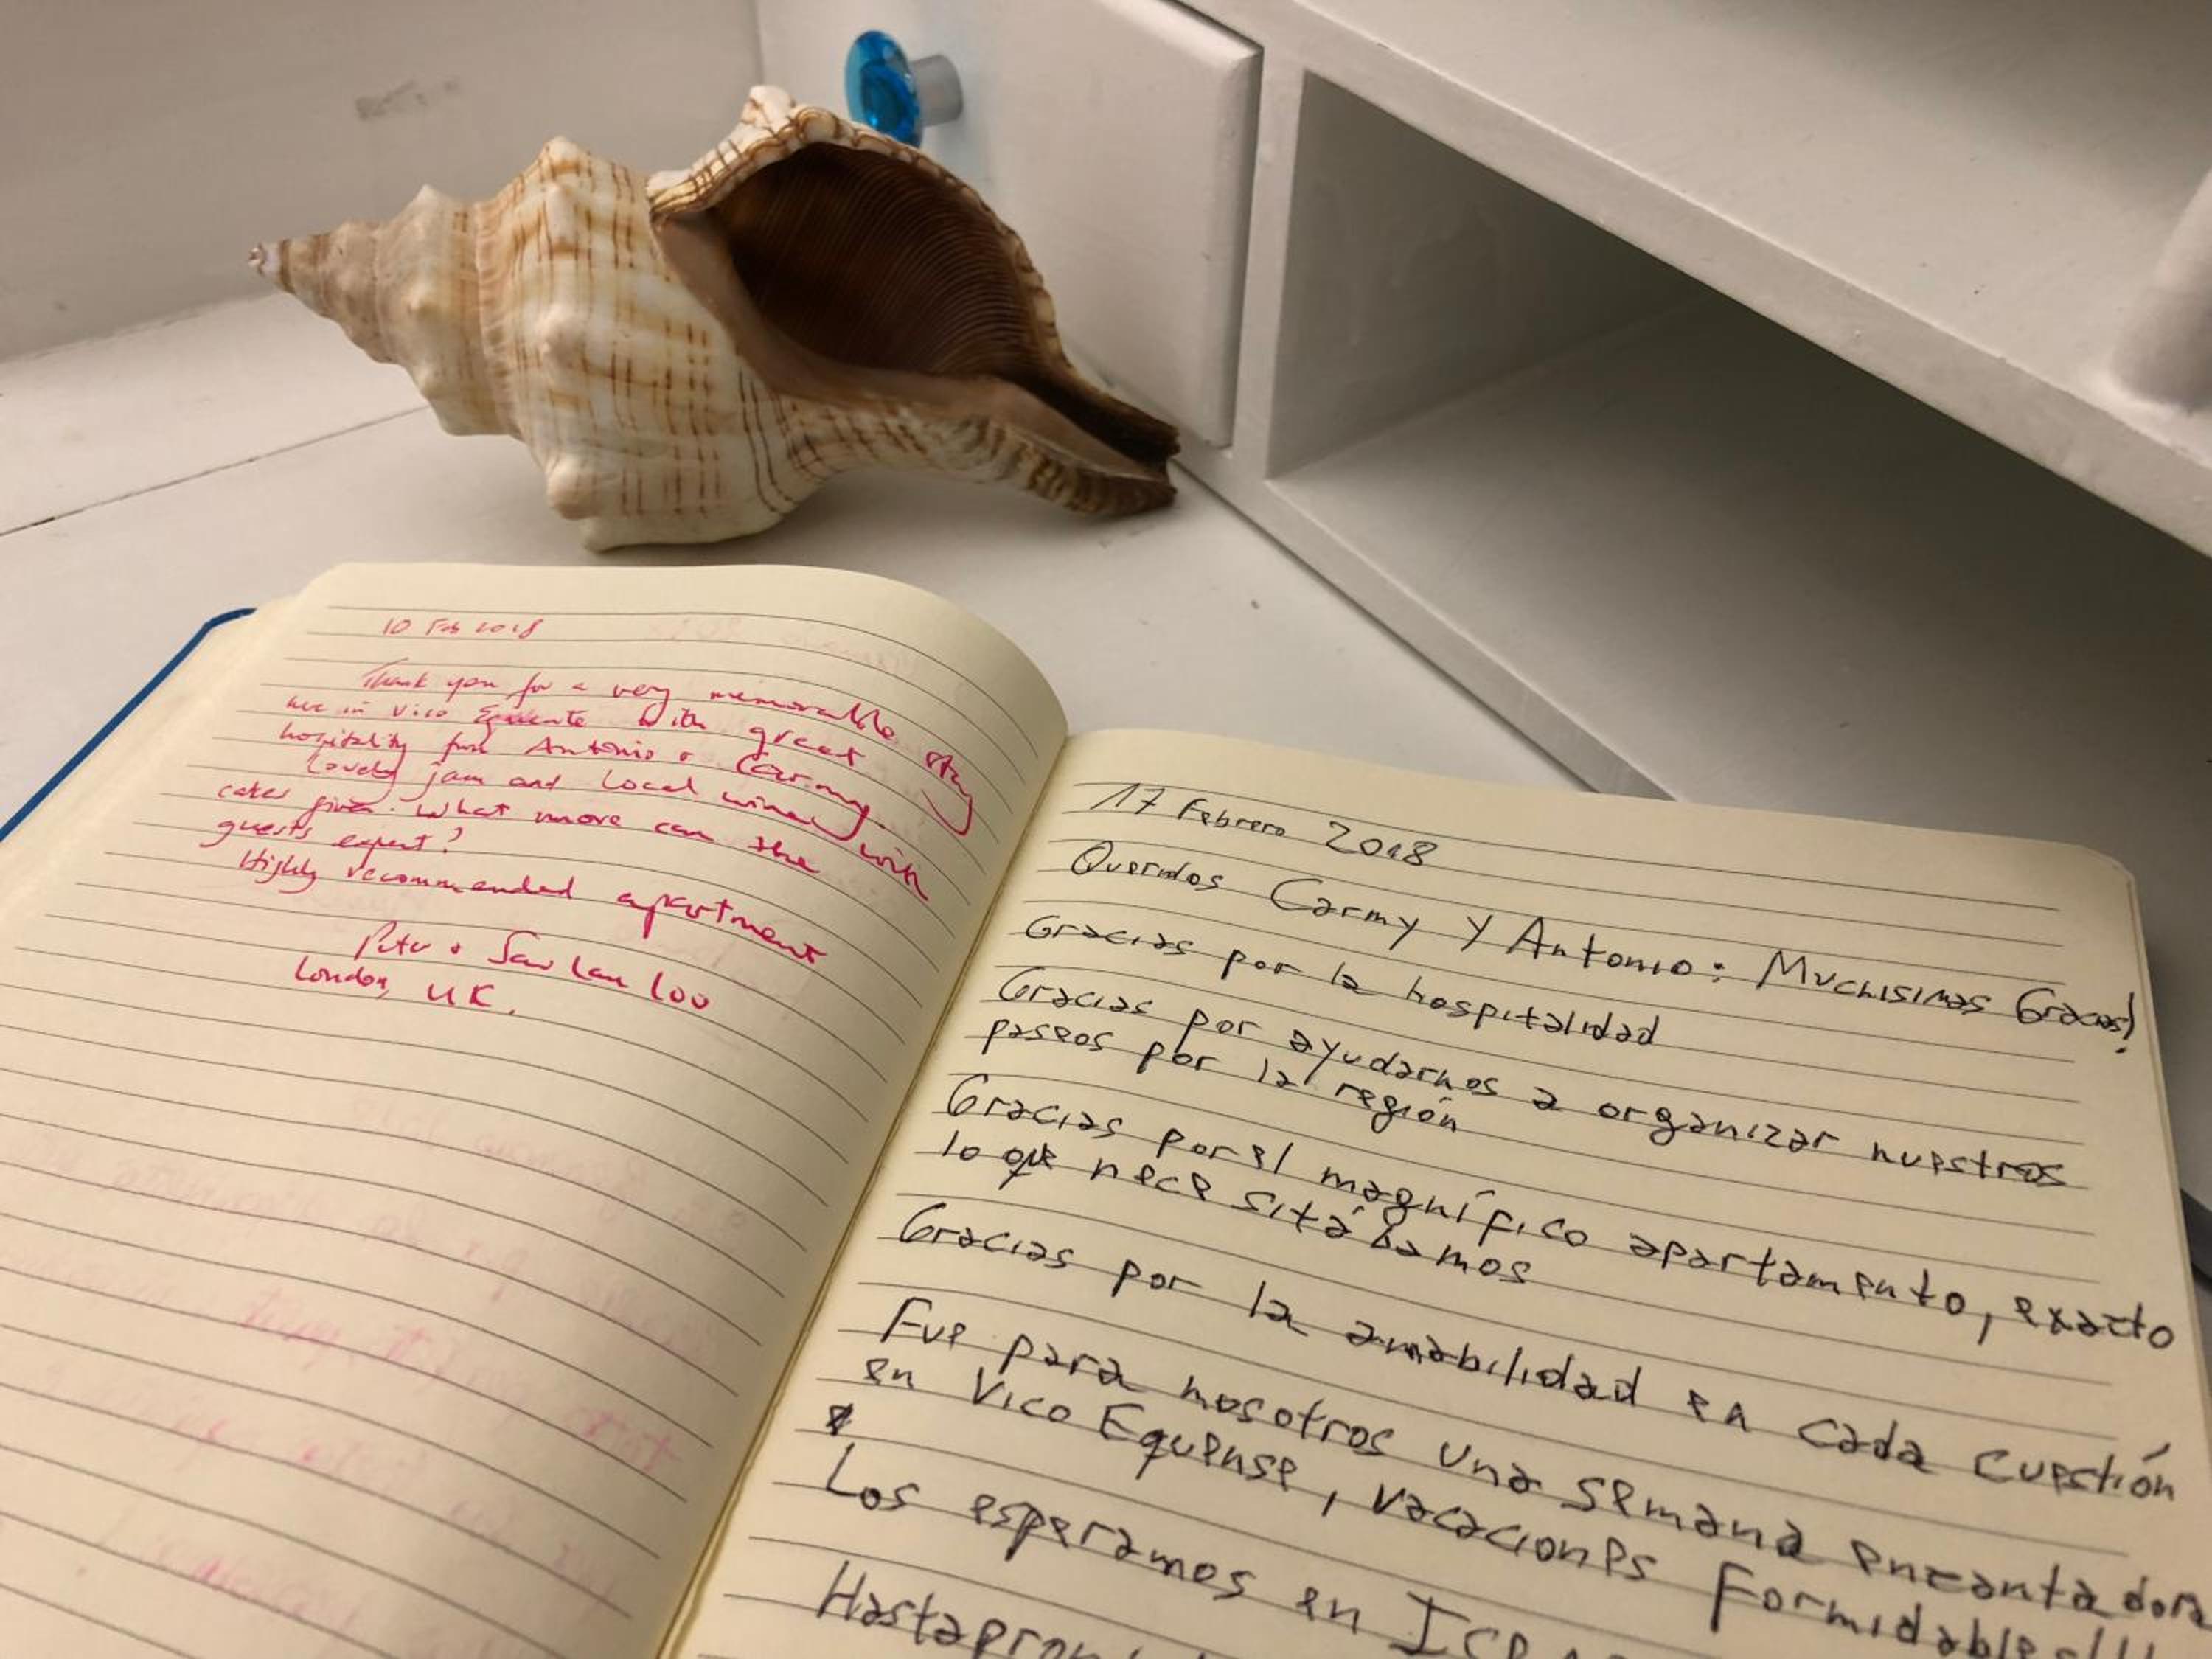 10 Feb 2018
Thank you for a very memorable stay
here in Vico Equense with great
hospitality from Antonio & Carmy.
Lovely jam and local wine with
cakes given. What more can the
guests expect?
Highly recommended apartment
Peter & Saw Lan Loo
London, UK.
17 Febrero 2018
Queridos Carmy y Antonio: Muchisimas Gracias!
Gracias por la hospitalidad
Gracias por ayudarnos a organizar nuestros
paseos por la región
Gracias por el magnífico apartamento, exacto
lo que necesitábamos
Gracias por la amabilidad en cada cuestión
Fue para nosotros una semana encantadora
en Vico Equense, vacaciones formidables!!!
Los esperamos en